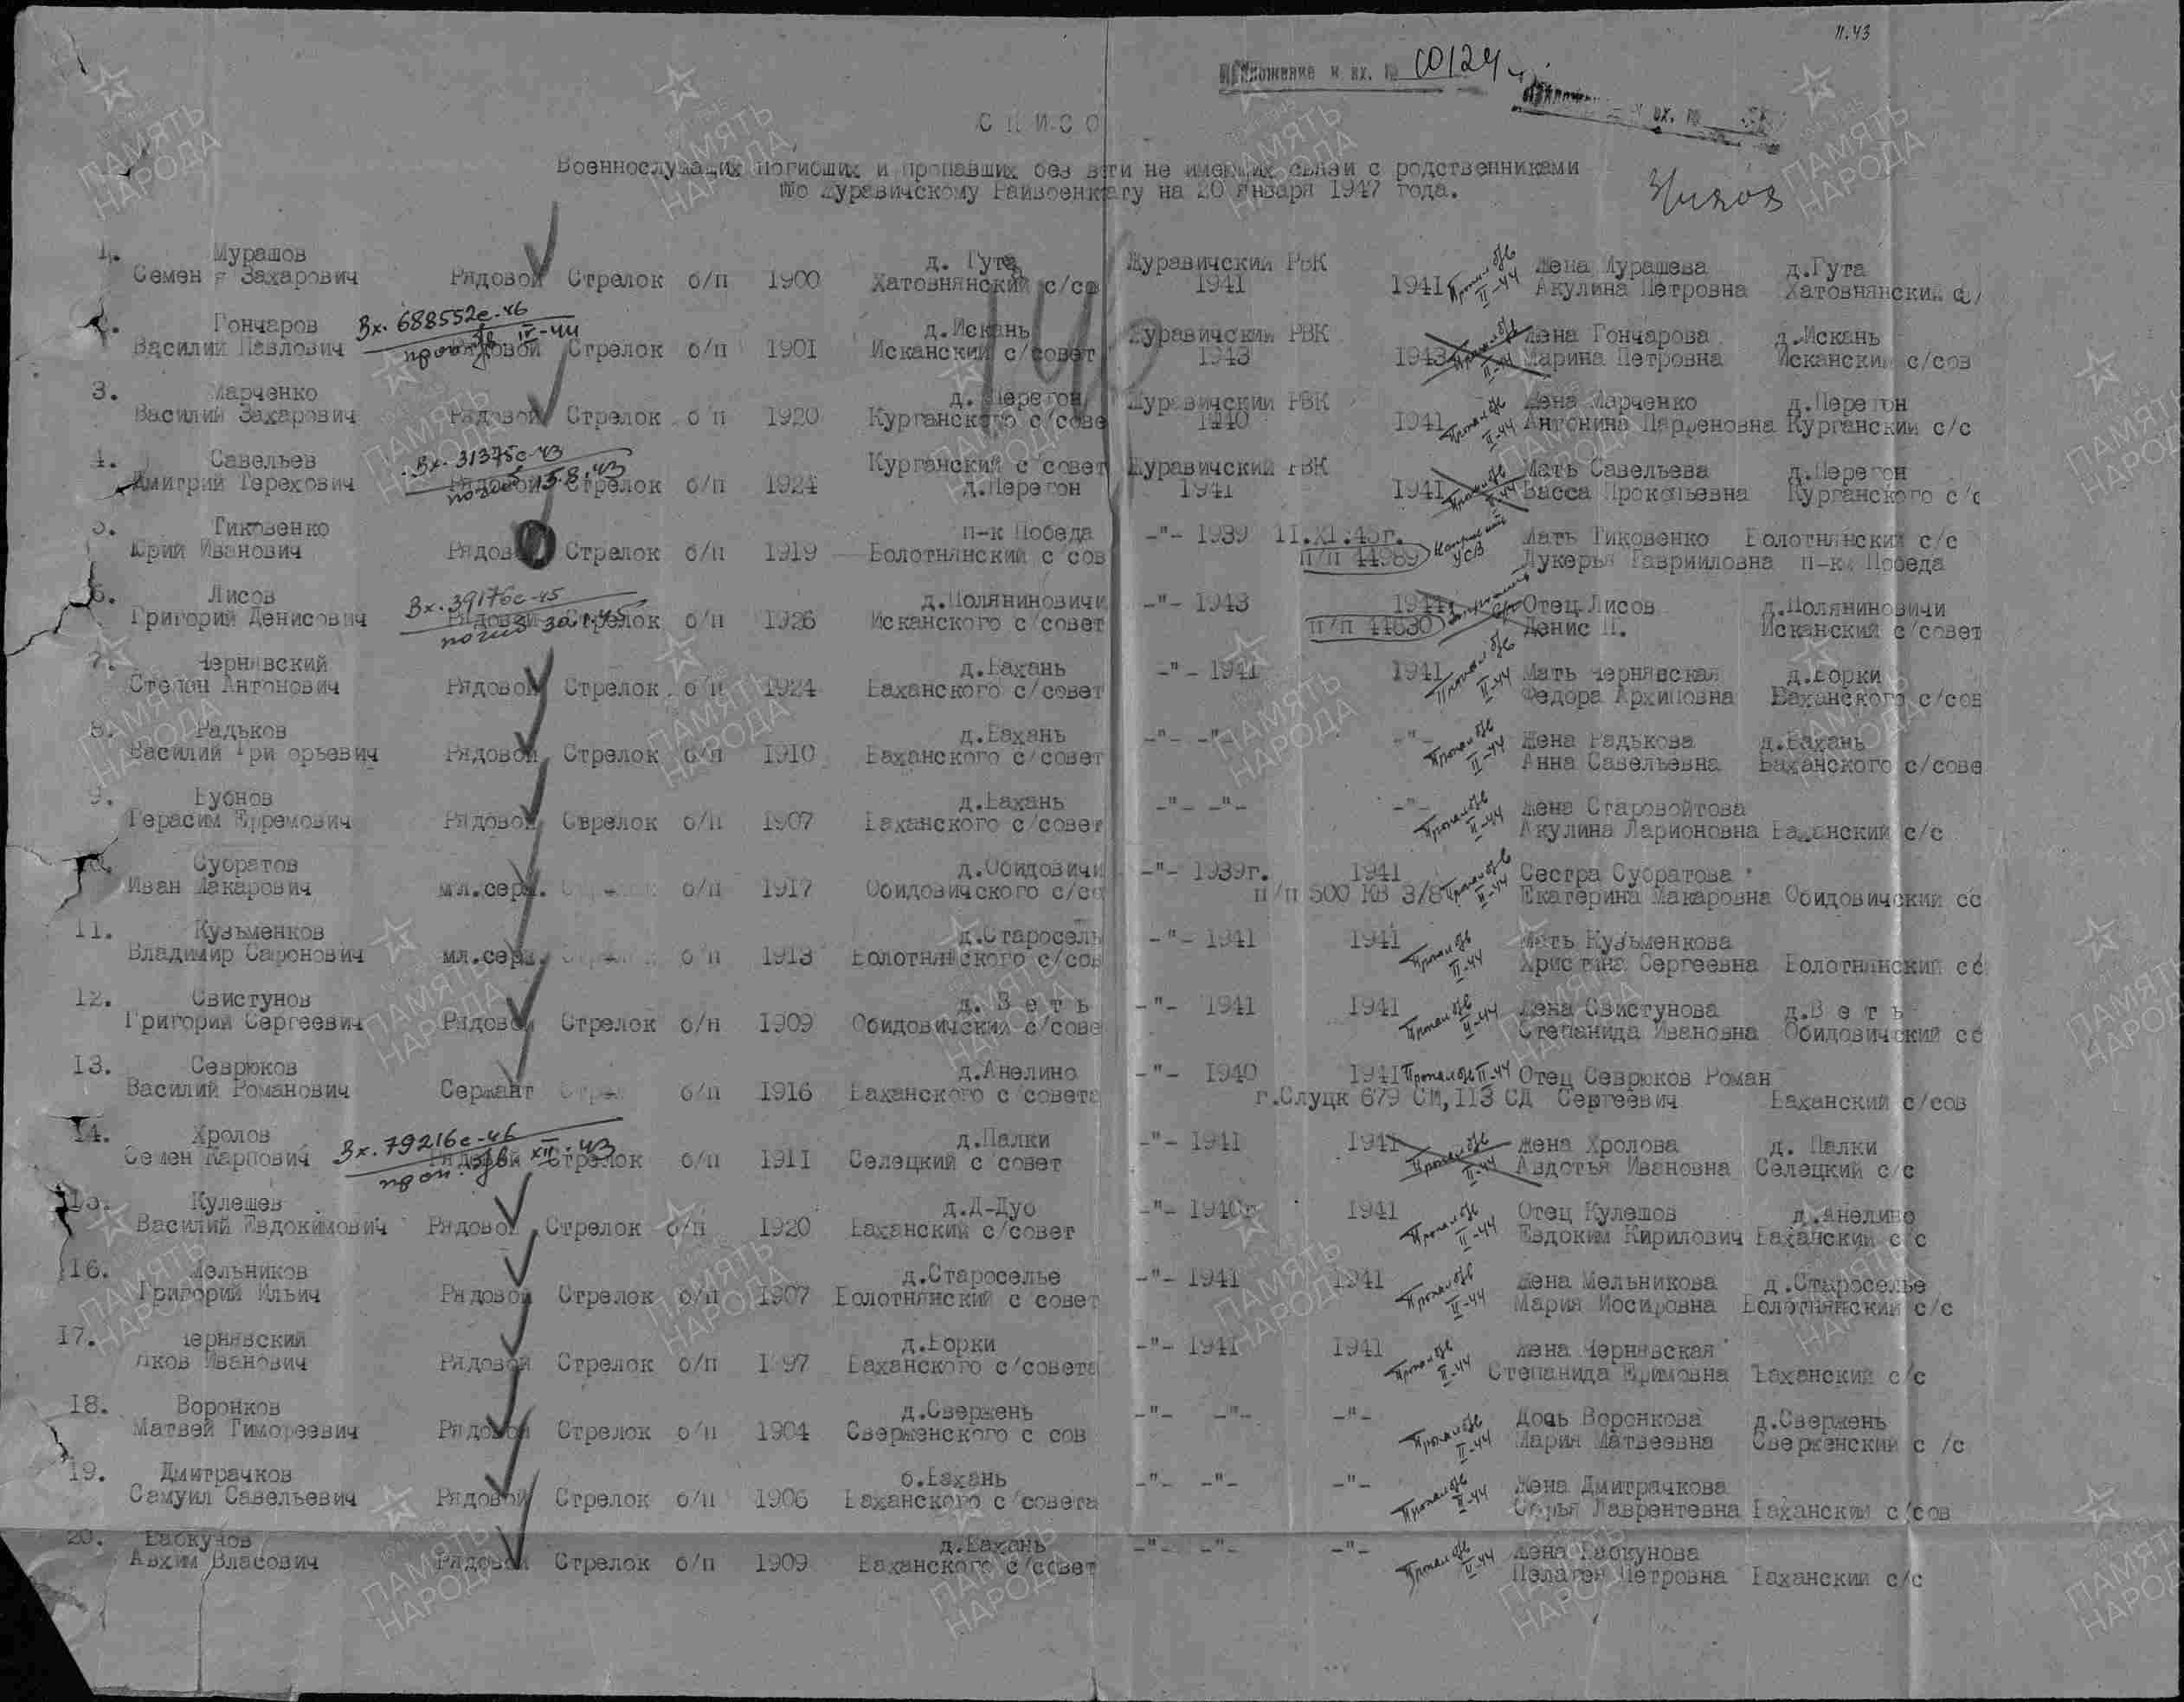 11.43
Приложение к вх. № 00124
вх. №
СПИСО
Военнослужащих погибших и пропавших без вести не имеющих связи с родственниками
По Журавичскому Райвоенкмату на 20 января 1947 года.
1. Мурашов д. Гута Журавичский РВК Жена Мурашева д.Гута
Семен Захарович Рядовой Стрелок б/п 1900 Хатовнянский с/сов 1941 1941 Пропал б/в II-44 Акулина Петровна Хатовнянский с/
Вх. 688552с-46
2. Гончаров д.Искань Журавичский РВК Жена Гончарова д.Искань
Василий Павлович Рядовой Стрелок б/п 1901 Исканский с/совет 1943 1943 Пропал б/в II-44 Марина Петровна Исканский с/сов
проп. б/в IV-44
3. Марченко д. Перегон Журавичский РВК Жена Марченко д.Перегон
Василий Захарович Рядовой Стрелок б/п 1920 Курганского с/сове 1940 1941 Пропал б/в II-44 Антонина Парфеновна Курганский с/с
Вх. 31375с-43
4. Савельев Курганский с/совет Журавичский РВК Мать Савельева д.Перегон
Дмитрий Терехович Рядовой Стрелок б/п 1924 д.Перегон 1941 1941 Пропал б/в II-44 Васса Прокопьевна Курганского с/с
погиб 15.8.43
5. Тиковенко п-к Победа -"- 1939 11.XI.45г. Мать Тиковенко Болотнянский с/с
Юрий Иванович Рядовой Стрелок б/п 1919 Болотнянский с/сов п/п 44989 УСВ Лукерья Гаврииловна п-к Победа
Вх. 39176с-45
6. Лисов д.Поляниновичи -"- 1943 1944 Отец Лисов д.Поляниновичи
Григорий Денисович Рядовой Стрелок б/п 1926 Исканского с/совет п/п 44630 Денис П. Исканский с/совет
погиб
7. Чернявский д.Бахань -"- 1941 1941 Пропал б/в II-44 Мать Чернявская д.Борки
Степан Антонович Рядовой Стрелок б/п 1924 Баханского с/совет Федора Архиповна Баханского с/сов
8. Радьков д.Бахань -"- -"- -"- Пропал б/в II-44 Жена Радькова д.Бахань
Василий Григорьевич Рядовой Стрелок б/п 1910 Баханского с/совет Анна Савельевна Баханского с/сове
9. Бубнов д.Бахань -"- -"- -"- Пропал б/в II-44 Жена Старовойтова
Герасим Ефремович Рядовой Стрелок б/п 1907 Баханского с/совет Акулина Ларионовна Баханский с/с
10. Субратов д.Обидовичи -"- 1939г. 1941 Пропал б/в II-44 Сестра Субратова
Иван Макарович мл.серж. б/п 1917 Обидовичского с/со п/п 500 КВ 3/8 Екатерина Макаровна Обидовичский сс
11. Кузьменков д.Старосель -"- 1941 1941 Пропал б/в II-44 Мать Кузьменкова
Владимир Сафонович мл.серж. б/п 1913 Болотнянского с/сов Христина Сергеевна Болотнянский сс
12. Свистунов д. В е т ь -"- 1941 1941 Пропал б/в II-44 Жена Свистунова д.В е т ь
Григорий Сергеевич Рядовой Стрелок б/п 1909 Обидовичский с/сове Степанида Ивановна Обидовичский сс
13. Севрюков д.Анелино -"- 1940 1941 Пропал б/в II-44 Отец Севрюков Роман
Василий Романович Сержант б/п 1916 Баханского с/совета г.Слуцк 679 СП, 113 СД Сергеевич Баханский с/сов
Вх. 79216с-46
14. Хролов д.Палки -"- 1941 1941 Пропал б/в II-44 Жена Хролова д. Палки
Семен Карпович Рядовой Стрелок б/п 1911 Селецкий с/совет Авдотья Ивановна Селецкий с/с
проп. б/в XII-43
15. Кулешев д.Д-Дуб -"- 1940г 1941 Пропал б/в II-44 Отец Кулешов д.Анелино
Василий Евдокимович Рядовой Стрелок б/п 1920 Баханский с/совет Евдоким Кирилович Баханский с/с
16. Мельников д.Староселье -"- 1941 1941 Пропал б/в II-44 Жена Мельникова д.Староселье
Григорий Ильич Рядовой Стрелок б/п 1907 Болотнянский с совет Мария Иосифовна Болотнянский с/с
17. Чернявский д.Борки -"- 1941 1941 Пропал б/в II-44 Жена Чернявская
Яков Иванович Рядовой Стрелок б/п 1897 Баханского с/совета Степанида Ефимовна Баханский с/с
18. Воронков д.Свержень -"- -"- -"- Пропал б/в II-44 Дочь Воронкова д.Свержень
Матвей Тимофеевич Рядовой Стрелок б/п 1904 Сверженского с сов Мария Матвеевна Сверженский с/с
19. Дмитрачков б.Бахань -"- -"- -"- Пропал б/в II-44 Жена Дмитрачкова
Самуил Савельевич Рядовой Стрелок б/п 1906 Баханского с/совета Софья Лаврентевна Баханский с/сов
20. Бабкунов д.Бахань -"- -"- -"- Пропал б/в II-44 Жена Бабкунова
Авхим Власович Рядовой Стрелок б/п 1909 Баханского с/совет Пелагея Петровна Баханский с/с
ПАМЯТЬ НАРОДА